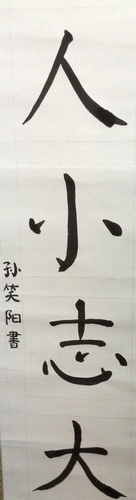 人小志大
孙笑阳書